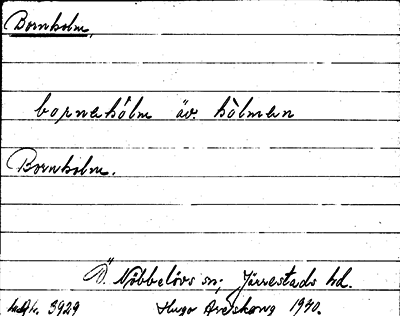 Bornholm,
bornehölm äv. hölmen
Bornholm.
Ö. Nöbbelövs sn; Järrestads hd.
3929 Hugo Areskoug 1930.